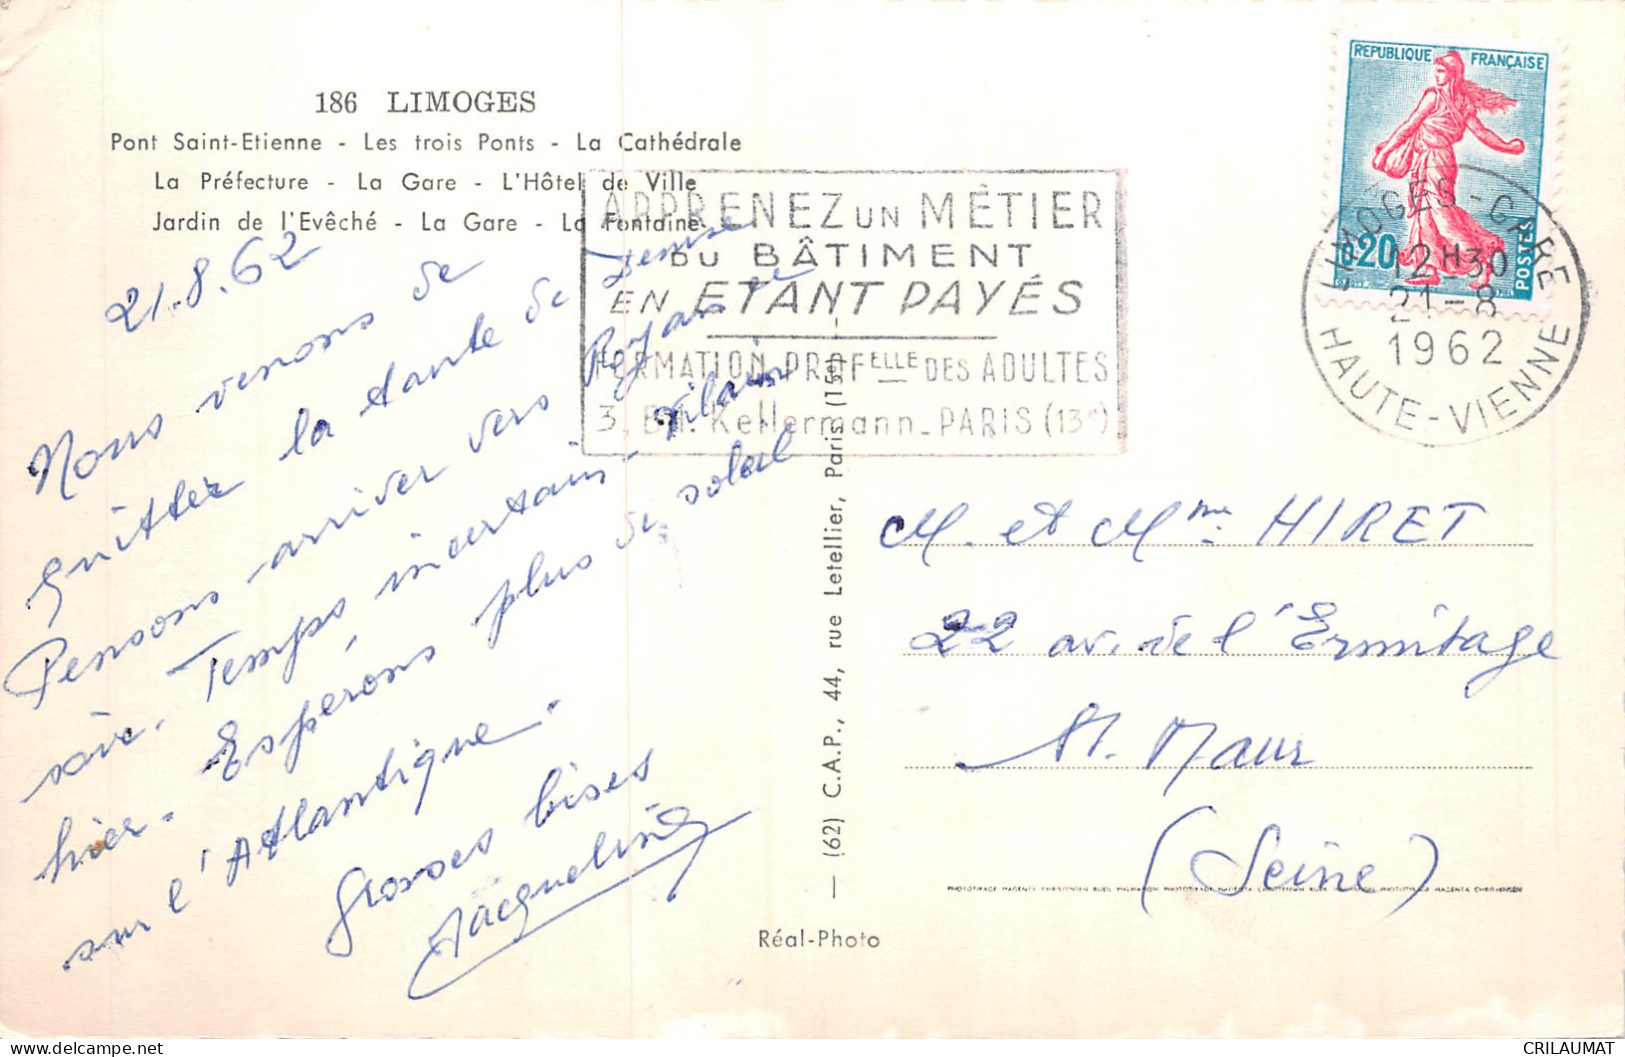 186 LIMOGES
Pont Saint-Etienne - Les trois Ponts - La Cathédrale
La Préfecture - La Gare - L'Hôtel de Ville
Jardin de l'Evêché - La Gare - La Fontaine
21.8.62
Nous venons de
quitter la tante de Denise
Pensons arriver vers Royan ce
soir. Temps incertain - vilain
hier. Espérons plus de soleil
sur l'Atlantique.
Grosses bises
Jacqueline
APPRENEZ UN MÉTIER
DU BÂTIMENT
EN ETANT PAYÉS
FORMATION PROFELLE DES ADULTES
3, Bd. Kellermann - PARIS (13e)
REPUBLIQUE FRANÇAISE
0,20
POSTES
LIMOGES-GARE
12H30
21-8
1962
HAUTE-VIENNE
— (62) C.A.P., 44, rue Letellier, Paris (15e) —
M. et Mme HIRET
22 av. de l'Ermitage
St. Maur
(Seine)
Réal-Photo
CRILAUMAT